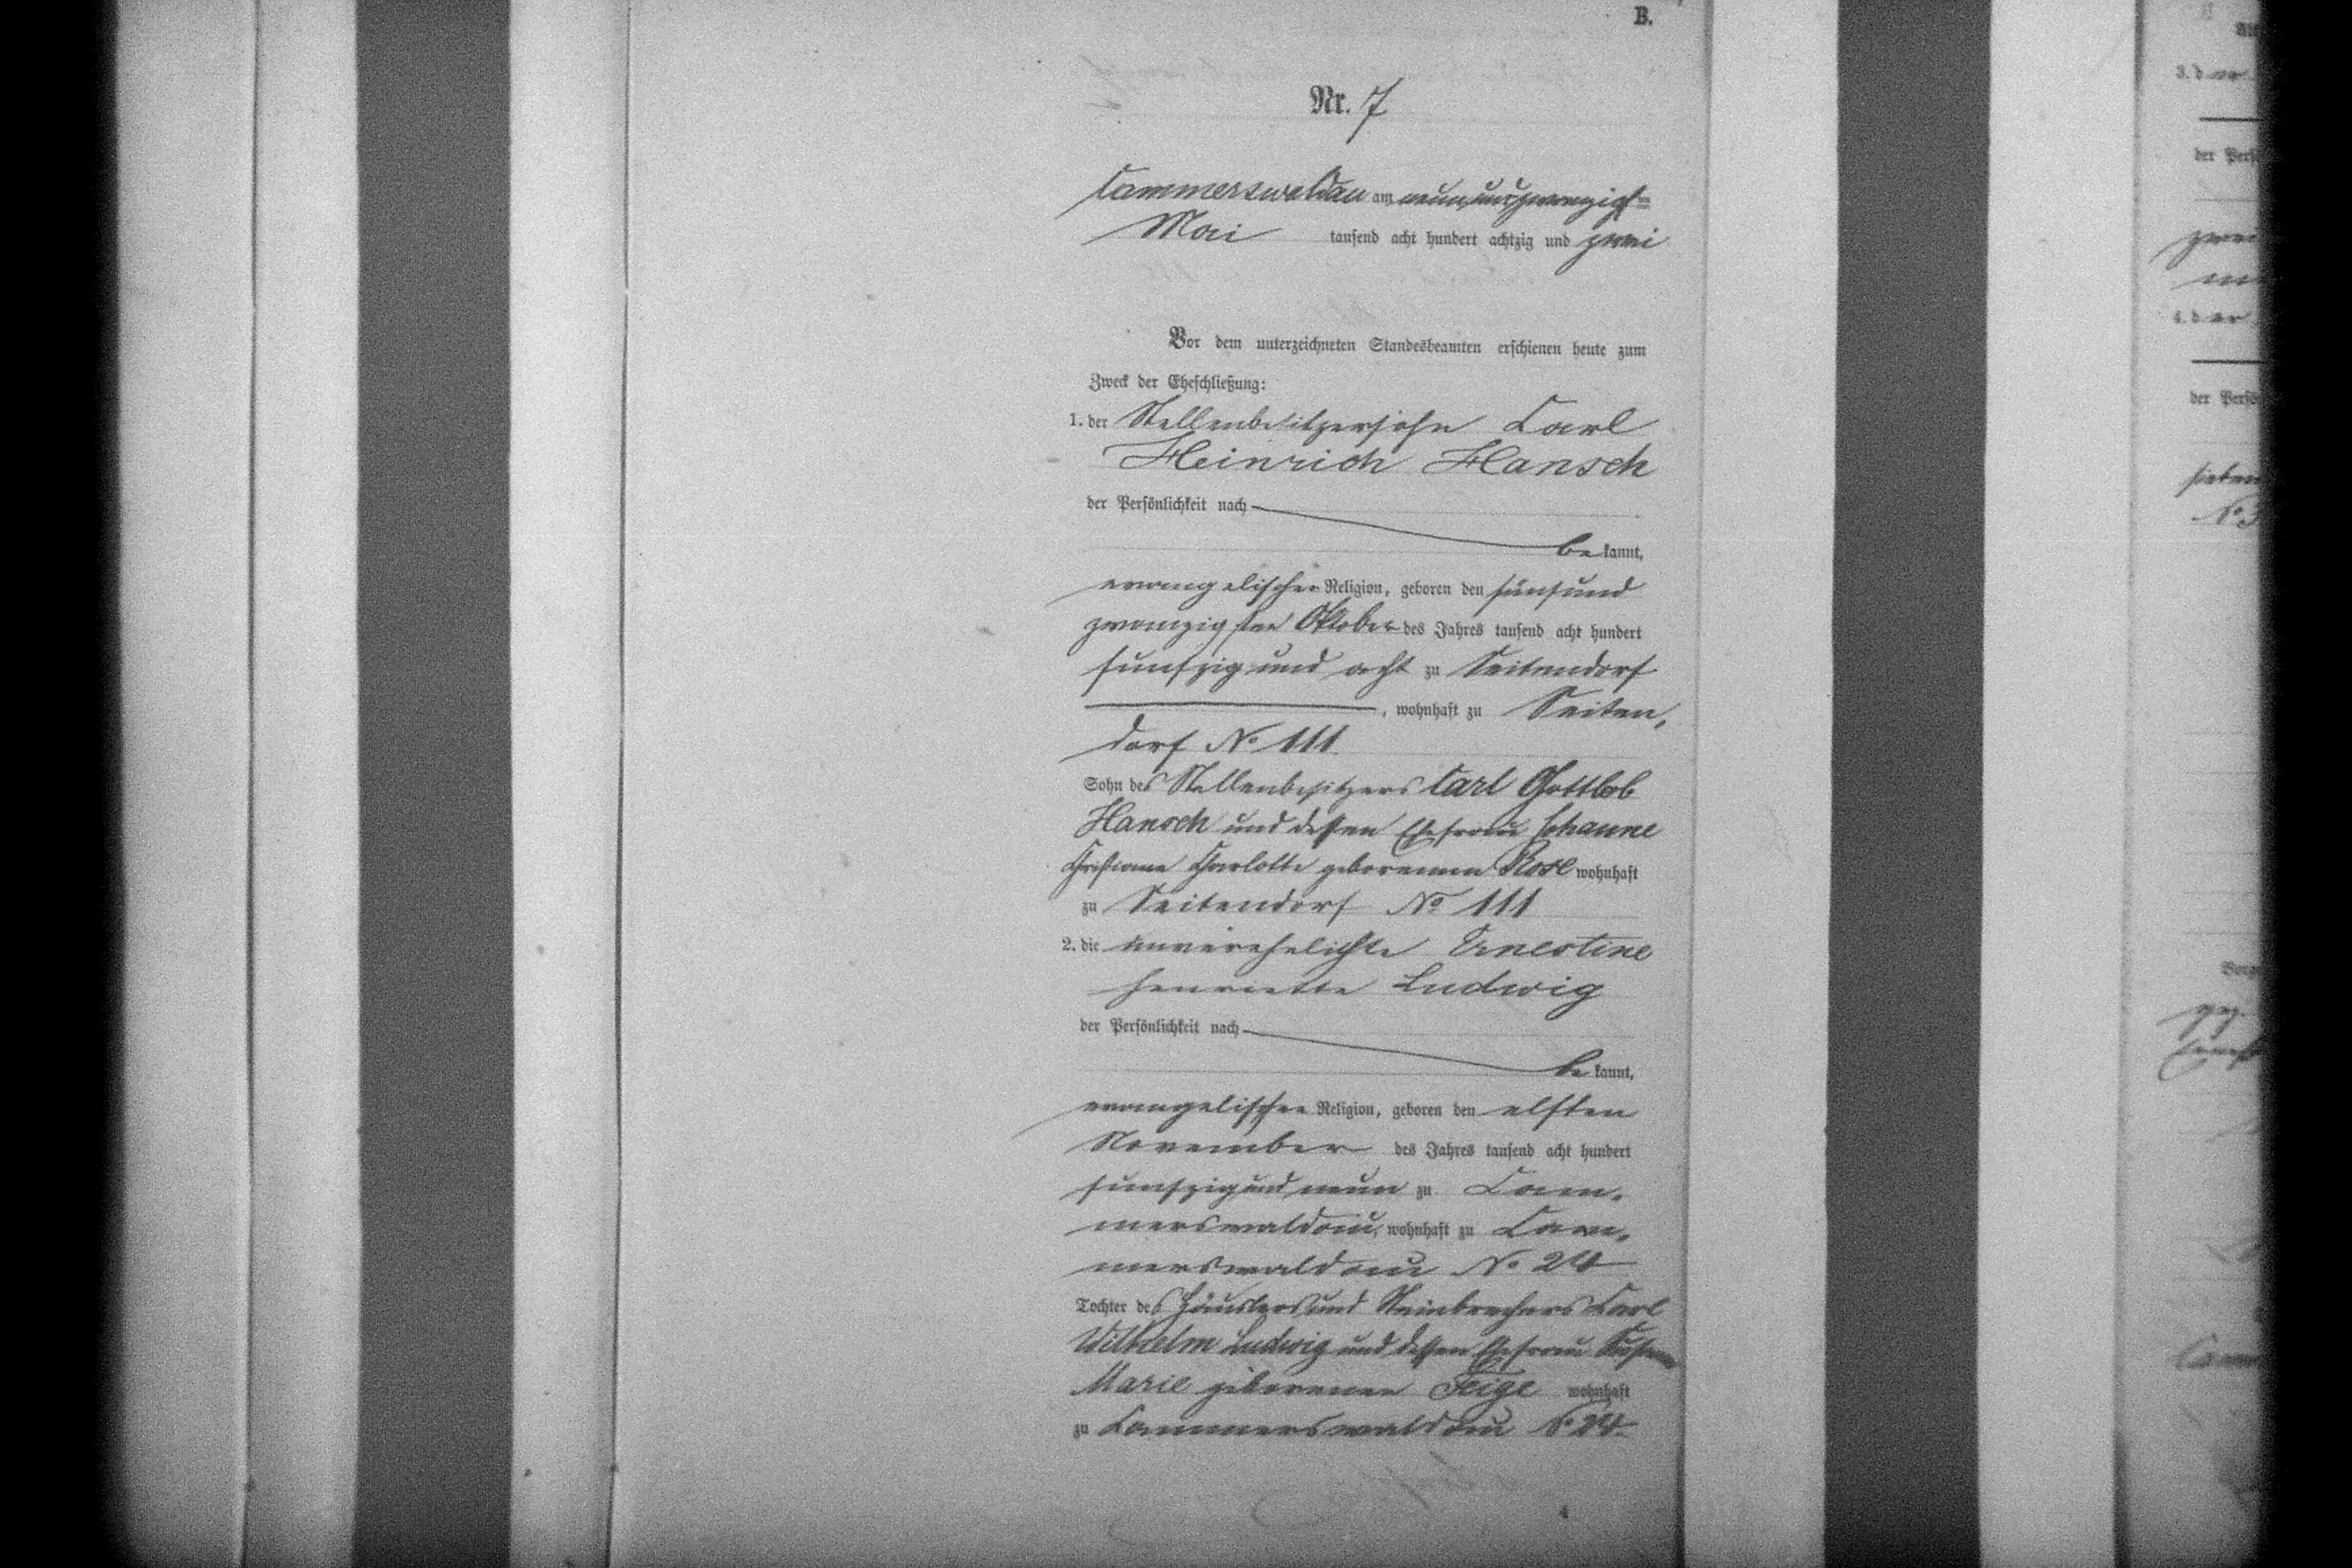 B.
Nr. 7
Cammerswaldau am neunundzwanzigsten
Mai tausend acht hundert achtzig und zwei
Vor dem unterzeichneten Standesbeamten erschienen heute zum
Zweck der Eheschließung:
1. der Stellenbesitzersohn Carl
Heinrich Hansch
der Persönlichkeit nach
be kannt,
evangelischer Religion, geboren den fünfund
zwanzigsten Oktober des Jahres tausend acht hundert
funfzig und acht zu Seitendorf
, wohnhaft zu Seiten,
dorf No 111
Sohn des Stellenbesitzers Carl Gottlob
Hansch und dessen Ehefrau Johanne
Christiane Charlotte geborenen Rose wohnhaft
zu Seitendorf No 111
2. die unverehelichte Ernestine
Henriette Ludwig
der Persönlichkeit nach
be kannt,
evangelischer Religion, geboren den elften
November des Jahres tausend acht hundert
funfzig und neun zu Cam,
merswaldau, wohnhaft zu Cam,
merswaldau No
Tochter des Häuslers und Steinbrechers Carl
Wilhelm Ludwig und dessen Ehefrau
Marie geborenen Feige wohnhaft
zu Cammerswaldau No
3. d er
der Pers
4. d er
der Pers
sieben